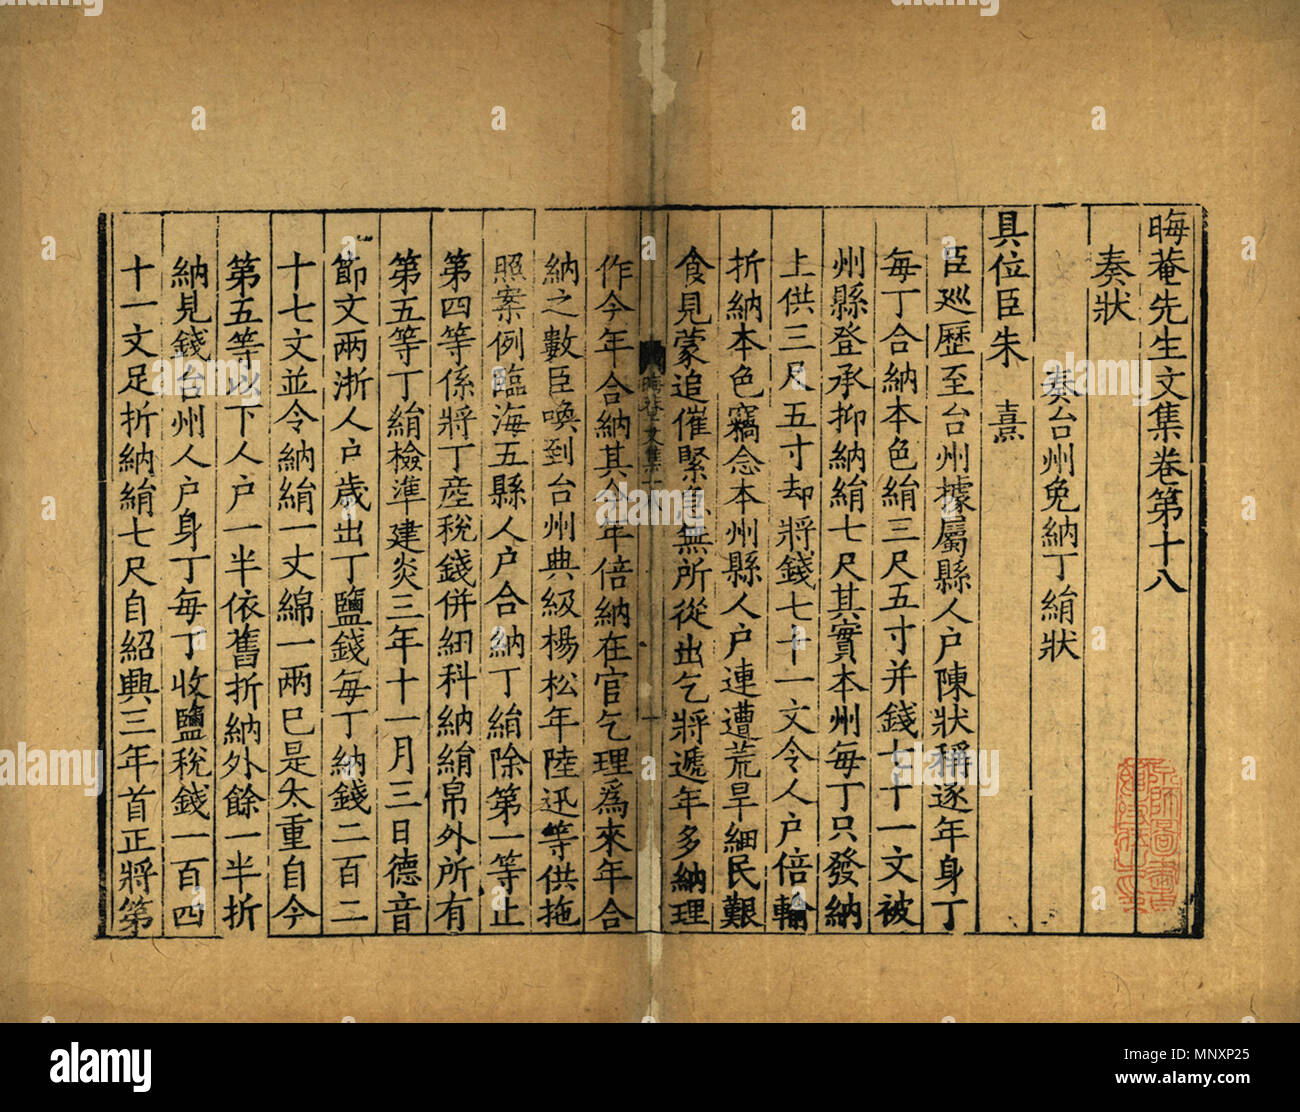 晦菴先生文集卷第十八
奏狀
奏台州免納丁絹狀
具位臣朱 熹
臣巡歷至台州據屬縣人户陳狀稱逐年身丁
每丁合納本色絹三尺五寸并錢七十一文被
州縣登承抑納絹七尺其實本州每丁只發納
上供三尺五寸却將錢七十一文令人户倍輸
折納本色竊念本州縣人户連遭荒旱細民艱
食見蒙追催緊急無所從出乞將遞年多納理
作今年合納其今年倍納在官乞理爲來年合
納之數臣喚到台州典級楊松年陸迅等供拖
照案例臨海五縣人户合納丁絹除第一等止
第四等係將丁産稅錢併紐科納絹帛外所有
第五等丁絹檢準建炎三年十一月三日德音
節文兩浙人户歲出丁鹽錢每丁納錢二百二
十七文並令納絹一丈綿一兩已是太重自今
第五等以下人户一半依舊折納外餘一半折
納見錢台州人户身丁每丁收鹽稅錢一百四
十一文足折納絹七尺自紹興三年首正將第
晦菴文集十八
一
alamy
Image ID: MNXP25
www.alamy.com